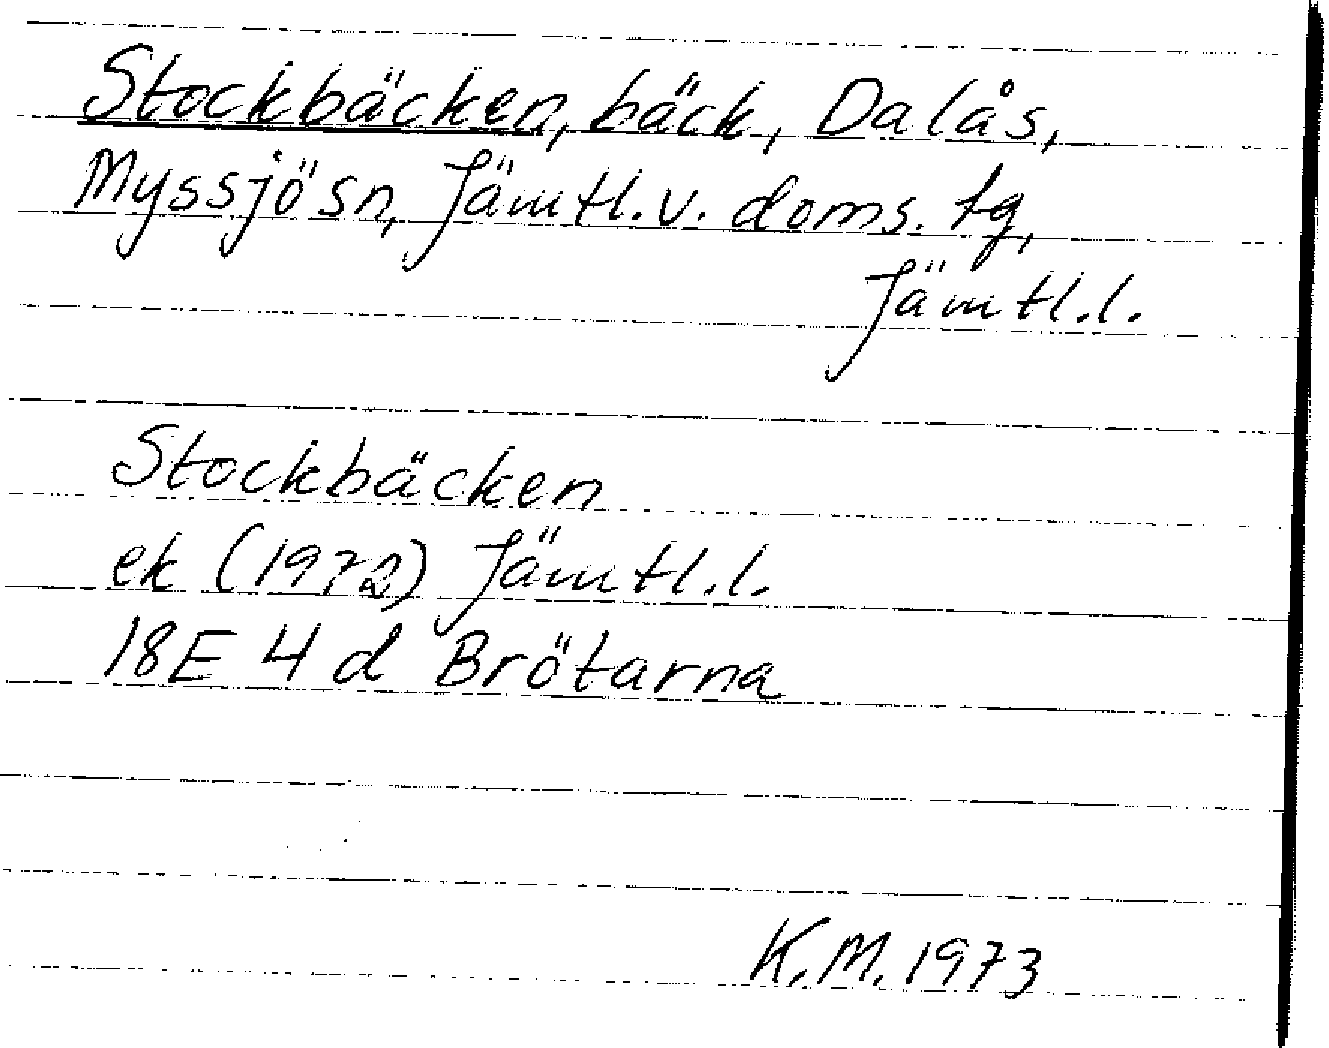 Stockbäcken, bäck, Dalås,
Myssjö sn, Jämtl. v. doms. tg,
Jämtl. l.
Stockbäcken
ek (1972) Jämtl. l.
18E 4 d Brötarna
K.M. 1973